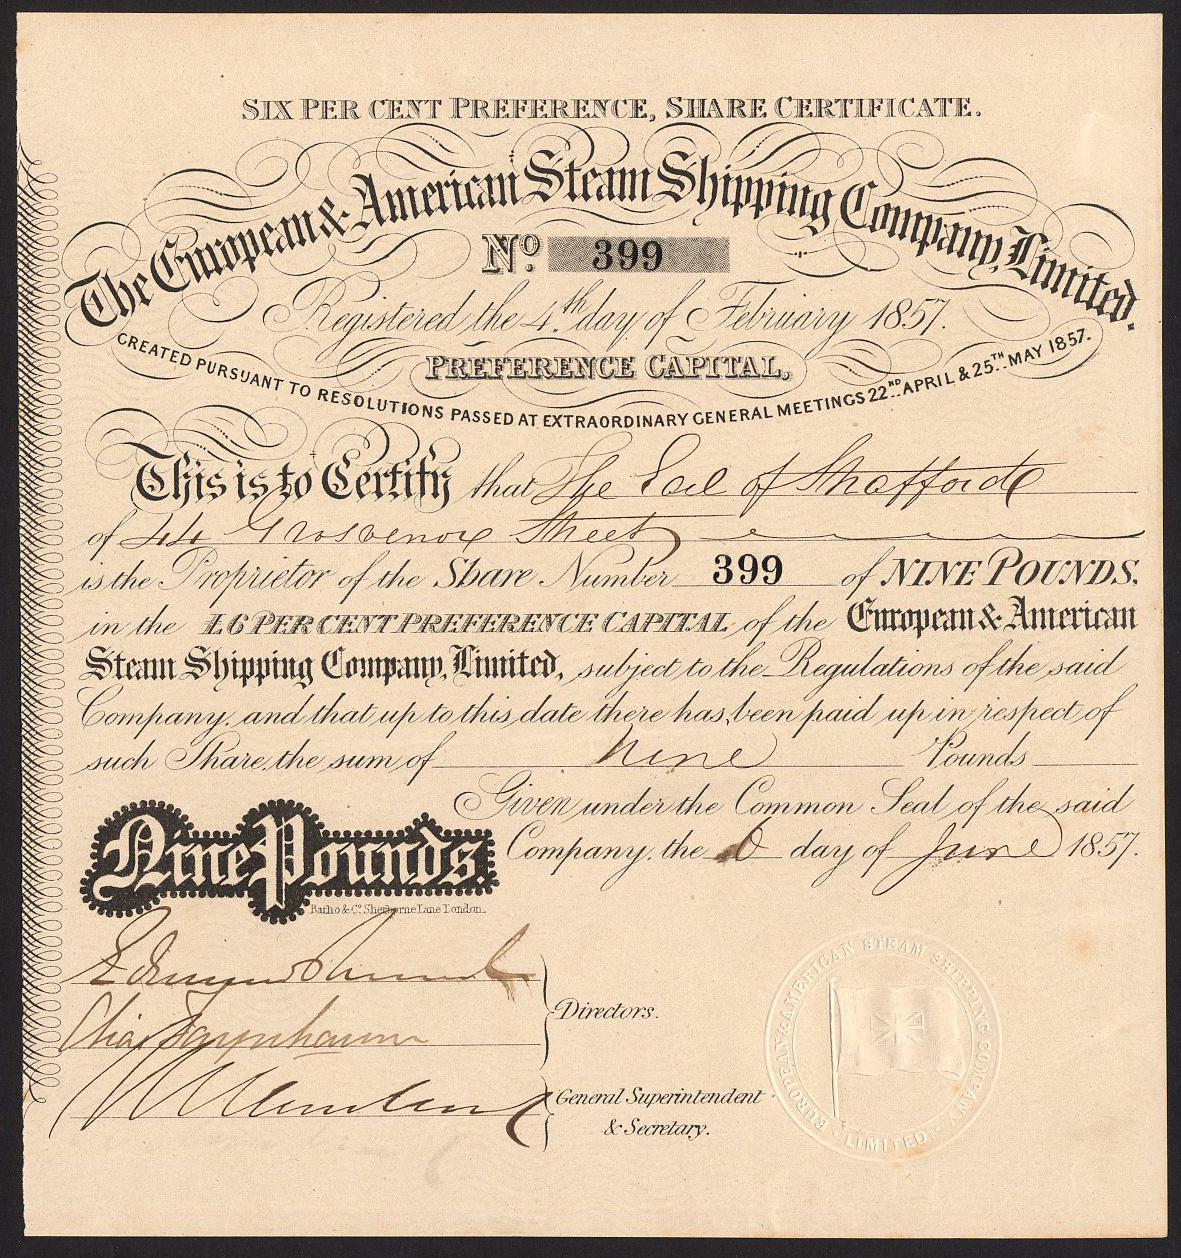 SIX PER CENT PREFERENCE, SHARE CERTIFICATE.
The European & American Steam Shipping Company, Limited.
No. 399
Registered the 4th day of February 1857.
PREFERENCE CAPITAL,
CREATED PURSUANT TO RESOLUTIONS PASSED AT EXTRAORDINARY GENERAL MEETINGS 22ND APRIL & 25TH MAY 1857.
This is to Certify that The Earl of Strafford
of 44 Grosvenor Street
is the Proprietor of the Share Number 399 of NINE POUNDS.
in the £6 PER CENT PREFERENCE CAPITAL of the European & American
Steam Shipping Company, Limited, subject to the Regulations of the said
Company, and that up to this date there has been paid up in respect of
such Share, the sum of nine Pounds
Given under the Common Seal of the said
Company, the 6 day of June 1857.
Nine Pounds.
Batho & Co. Sherborne Lane London.
Directors.
General Superintendent
& Secretary.
EUROPEAN & AMERICAN STEAM SHIPPING COMPANY
LIMITED